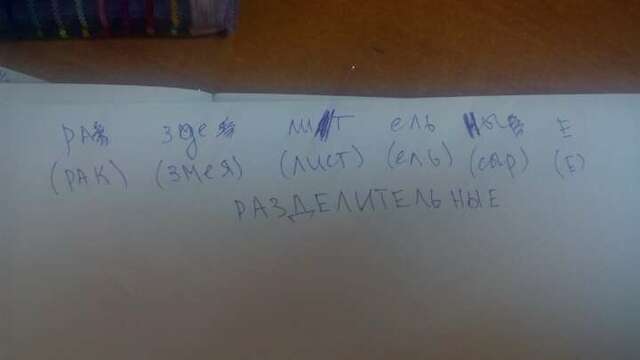 РА зде лит ель ны Е
(РАК) (ЗМЕЯ) (ЛИСТ) (ель) (сыр) (Е)
РАЗДЕЛИТЕЛЬНЫЕ